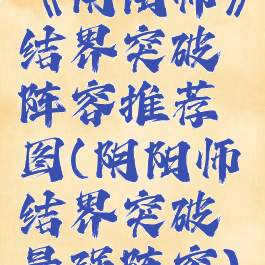 《阴阳师》
结界突破
阵容推荐
图(阴阳师
结界突破
最强阵容)